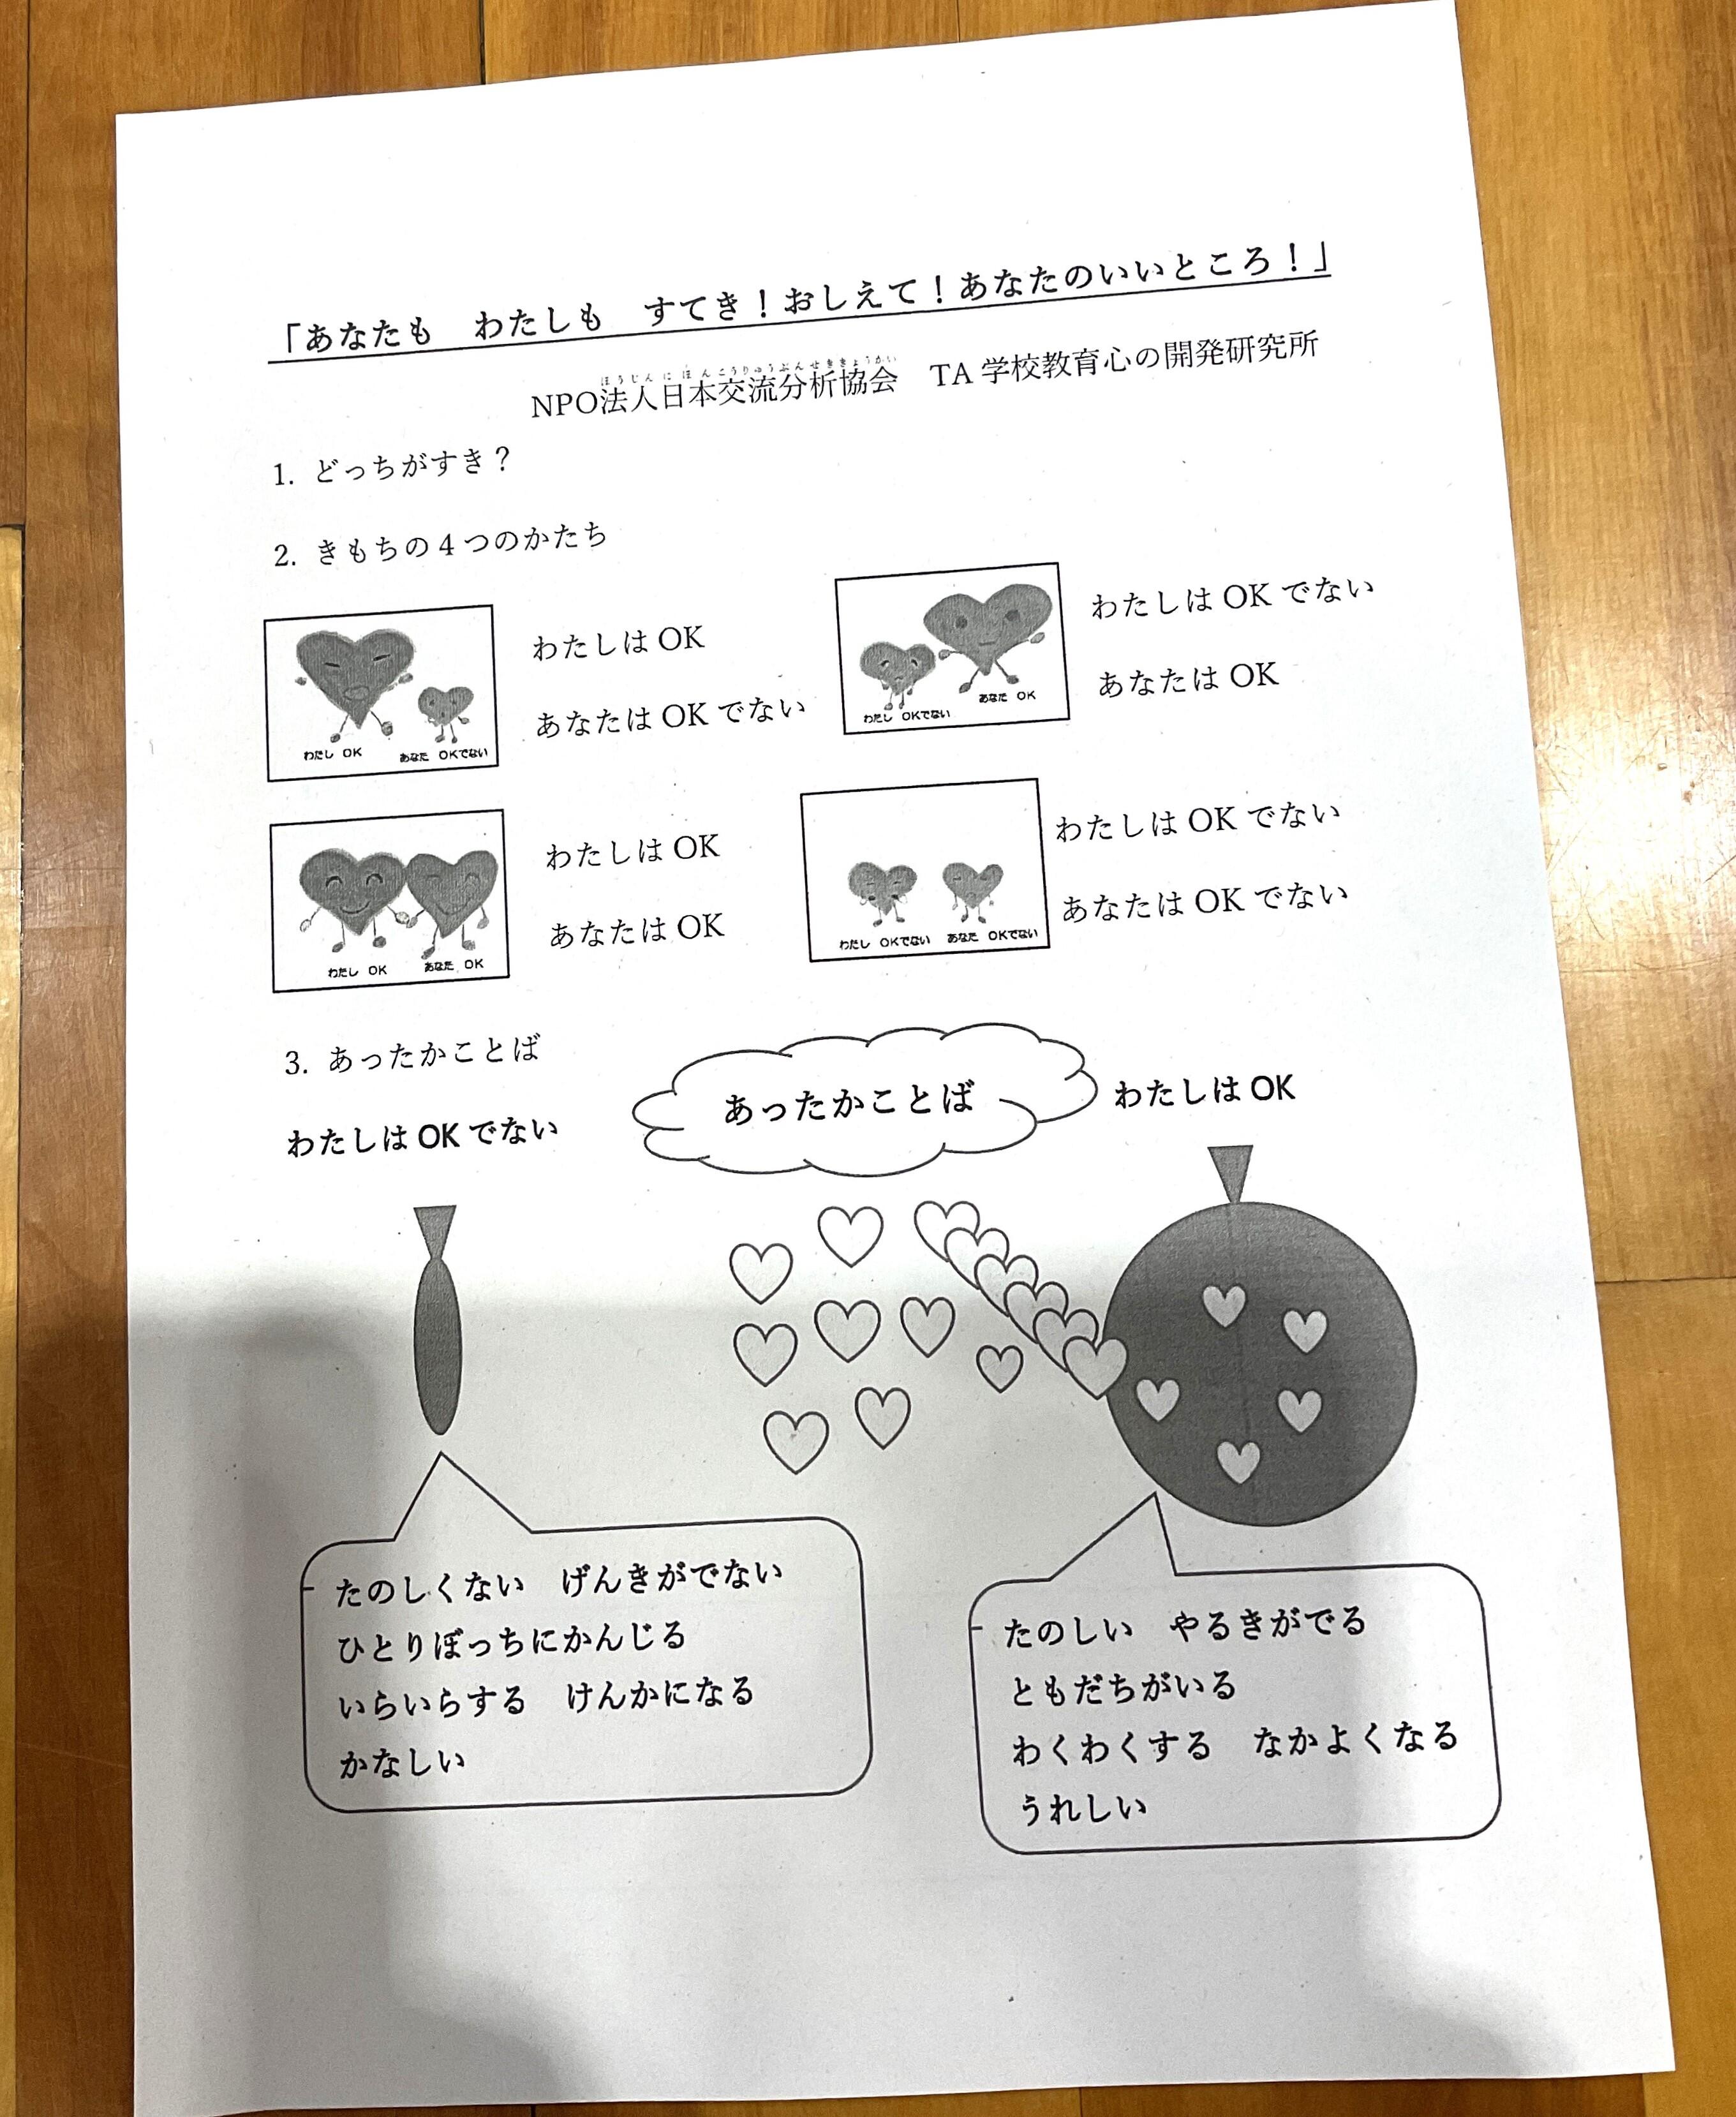 「あなたも　わたしも　すてき！おしえて！あなたのいいところ！」
ほうじんにほんこうりゅうぶんせききょうかい
NPO法人日本交流分析協会　TA学校教育心の開発研究所
1. どっちがすき？
2. きもちの４つのかたち
わたしは OK
あなたは OK でない
わたし OK
あなた OKでない
わたしは OK でない
あなたは OK
わたし OKでない
あなた OK
わたしは OK
あなたは OK
わたし OK
あなた OK
わたしは OK でない
あなたは OK でない
わたし OKでない
あなた OKでない
3. あったかことば
あったかことば
わたしは OK でない
わたしは OK
たのしくない　げんきがでない
ひとりぼっちにかんじる
いらいらする　けんかになる
かなしい
たのしい　やるきがでる
ともだちがいる
わくわくする　なかよくなる
うれしい